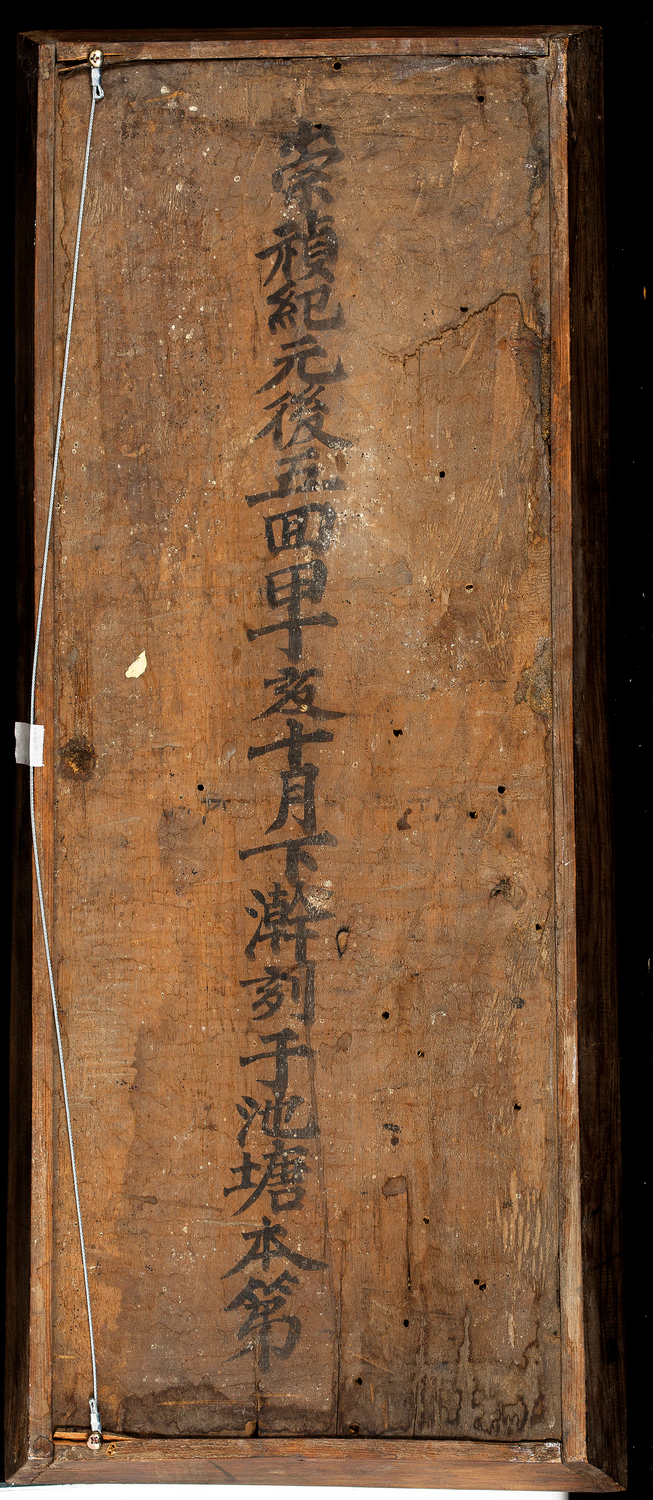 崇禎紀元後五回甲丁亥十月下澣刻于池塘本第